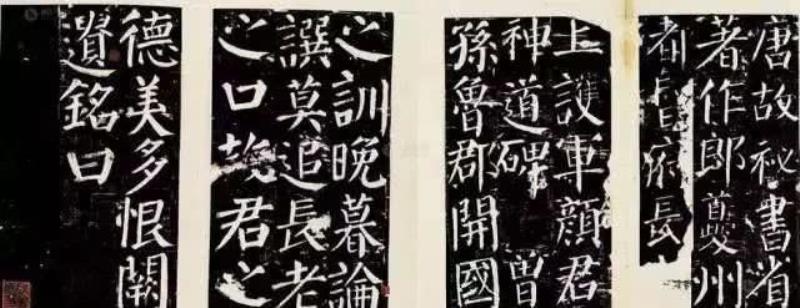 唐故祕書省
著作郎夔州
都督府長
上護軍顏君
神道碑 曽
孫魯郡開國
之訓晚暮論
譔莫追長老
之口故君之
德美多恨闕
遺銘曰